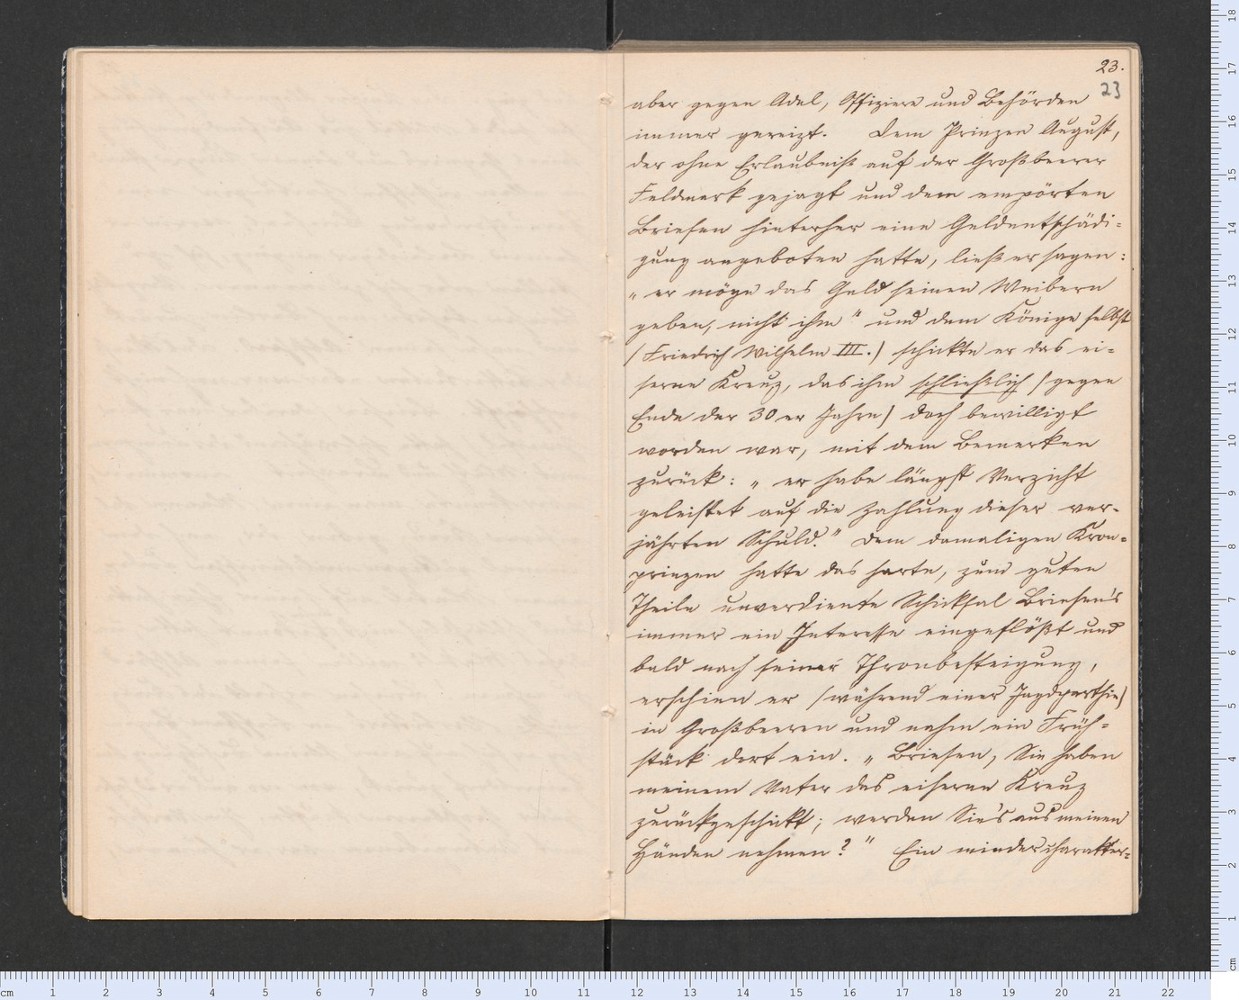 23.
23
aber gegen Adel, Offiziere und Behörden
immer gereizt. Dem Prinzen August,
der ohne Erlaubniß auf der Großbeerer
Feldmark gejagt und dem empörten
Briesen hinterher eine Geldentschädi-
gung angeboten hatte, ließ er sagen:
„er möge das Geld seinen Weibern
geben, nicht ihm" und dem Könige selbst
(Friedrich Wilhelm III.) schickte er das ei-
serne Kreuz, das ihm schließlich (gegen
Ende der 30er Jahre) doch bewilligt
worden war, mit dem Bemerken
zurück: „er habe längst Verzicht
geleistet auf die Zahlung dieser ver-
jährten Schuld." Dem damaligen Kron-
prinzen hatte das harte, zum guten
Theile unverdiente Schicksal Briesen's
immer ein Interesse eingeflößt und
bald nach seiner Thronbesteigung,
erschien er (während einer Jagdparthie)
in Großbeeren und nahm ein Früh-
stück dort ein. „Briesen, Sie haben
meinem Vater das eiserne Kreuz
zurückgeschickt; werden Sie's aus meinen
Händen nehmen?" Ein minder charakter-